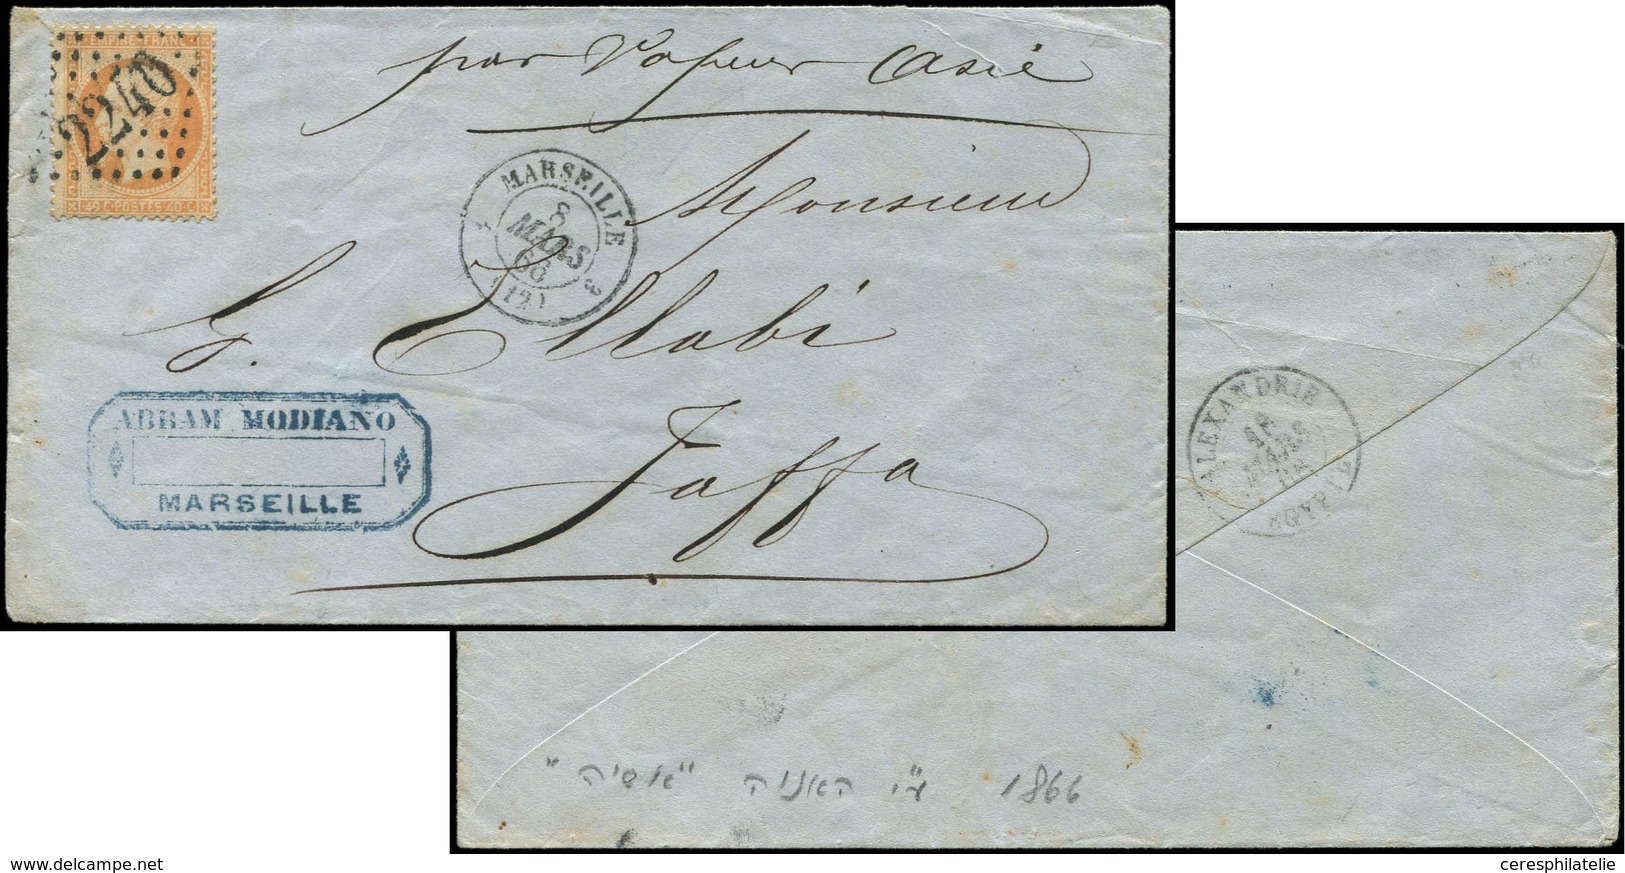 EMPIRE FRANC
2240
40 C POSTES 40 C
par Vapeur Asie
Monsieur
MARSEILLE
8
MARS
66
(12)
G. Ellabi
Jaffa
ABRAM MODIANO
MARSEILLE
ALEXANDRIE
MARS
EGYPTE
1866 ע"י האניה "אסיה"
www.delcampe.net
ceresphilatelie